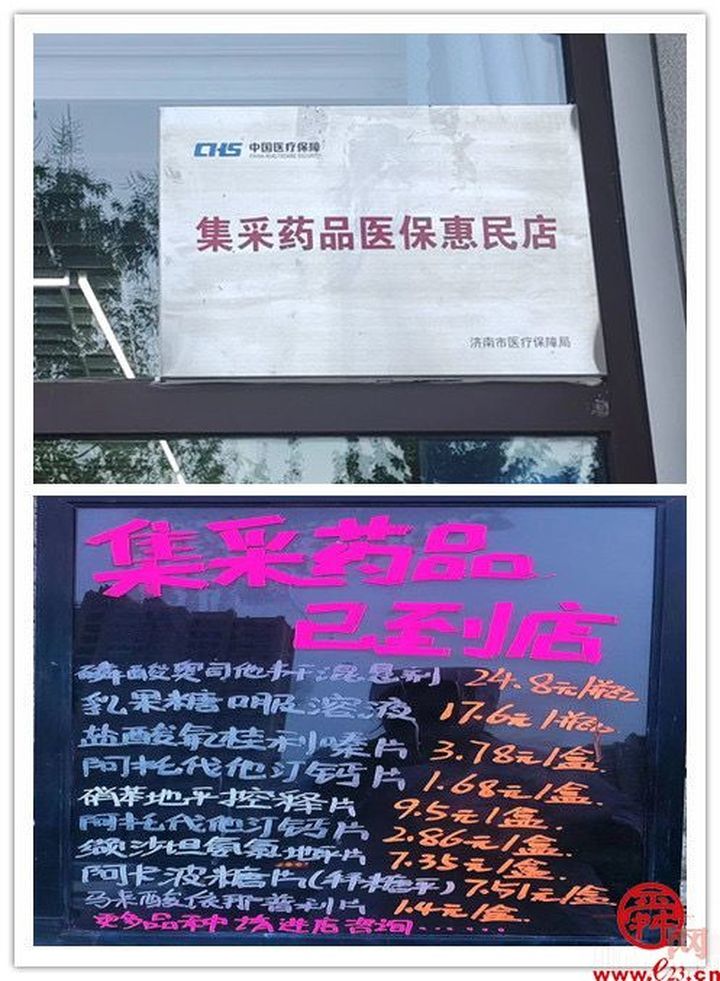 CHS 中国医疗保障
CHINA HEALTHCARE SECURITY
集采药品医保惠民店
济南市医疗保障局
集采药品
已到店
磷酸奥司他韦干混悬剂 24.8元/瓶
乳果糖口服溶液 17.6元/瓶
盐酸氟桂利嗪片 3.78元/盒
阿托伐他汀钙片 1.68元/盒.
硝苯地平控释片 9.5元/盒.
阿托伐他汀钙片 2.86元/盒.
缬沙坦氨氯地平片 7.35元/盒.
阿卡波糖片( 糖平) 7.51元/盒
马来酸依那普利片 1.4元/盒.
更多品种请进店咨询......
舜网
www.e23.cn